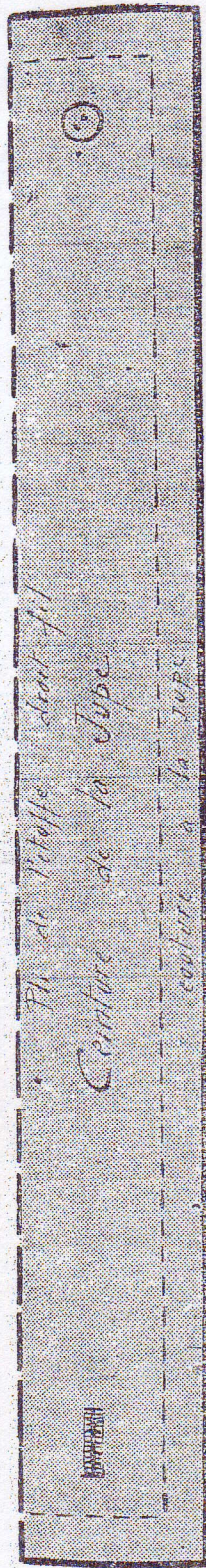 Pli de l'étoffe droit fil
Ceinture de la Jupe
couture a la jupe